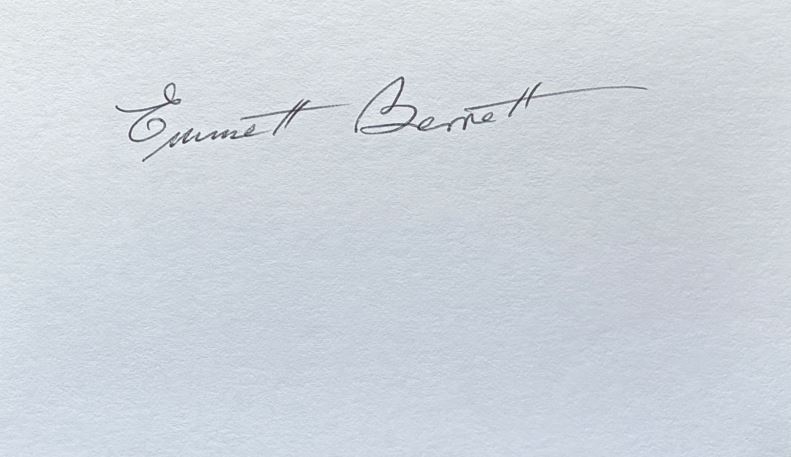 Emmett Bernett